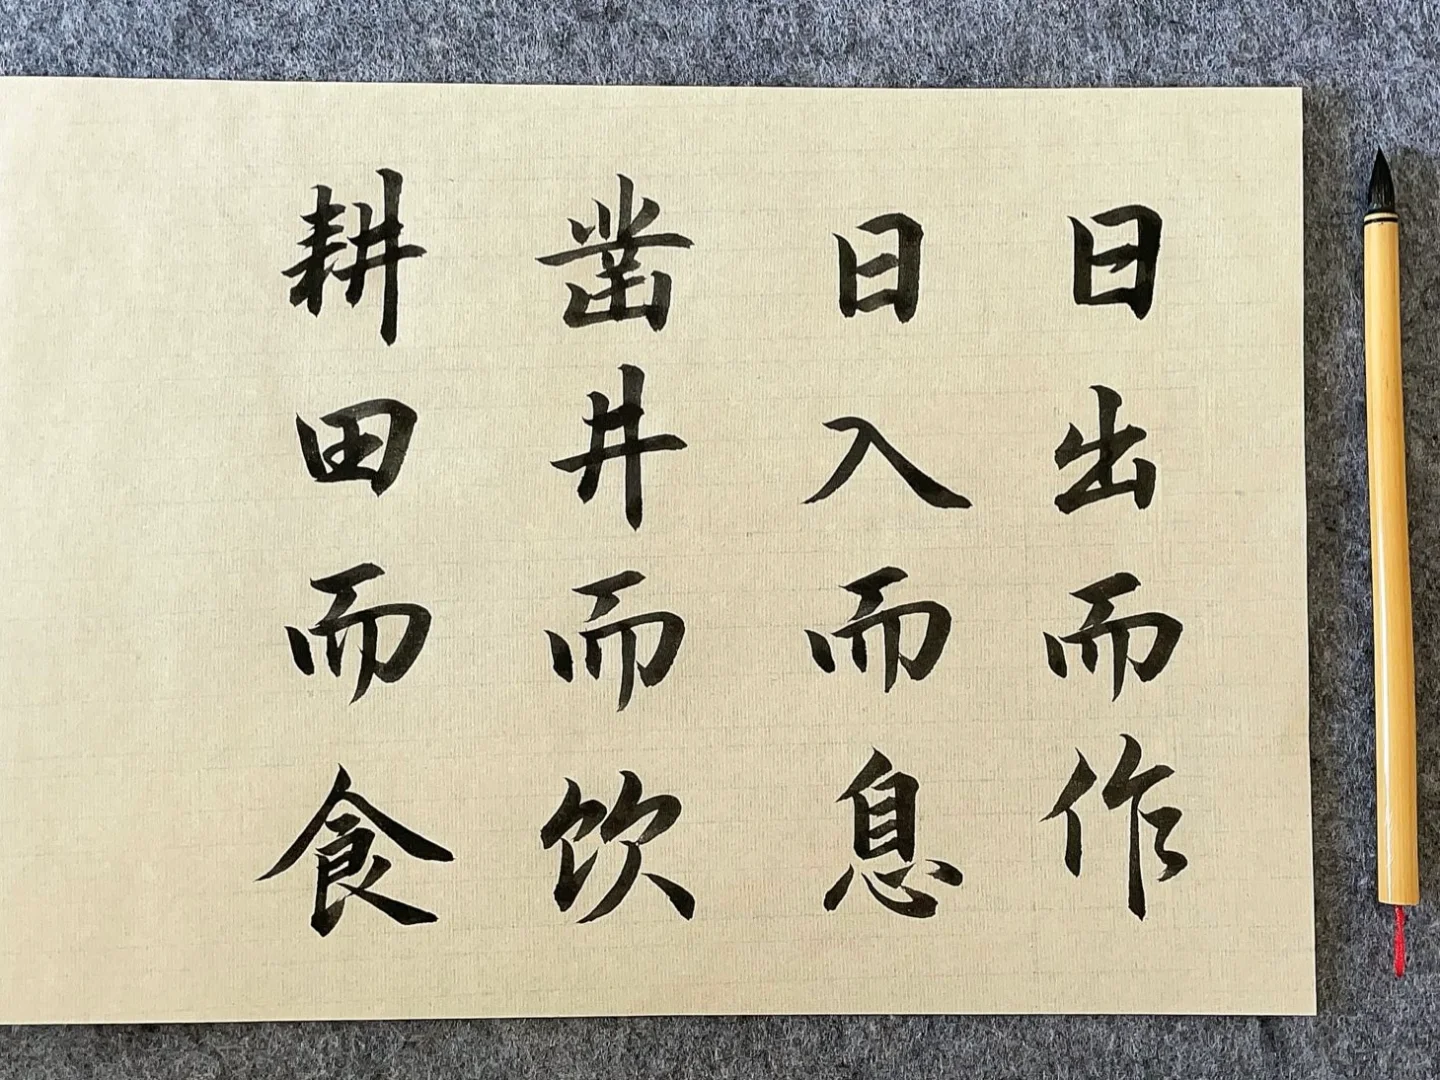 日出而作
日入而息
凿井而饮
耕田而食